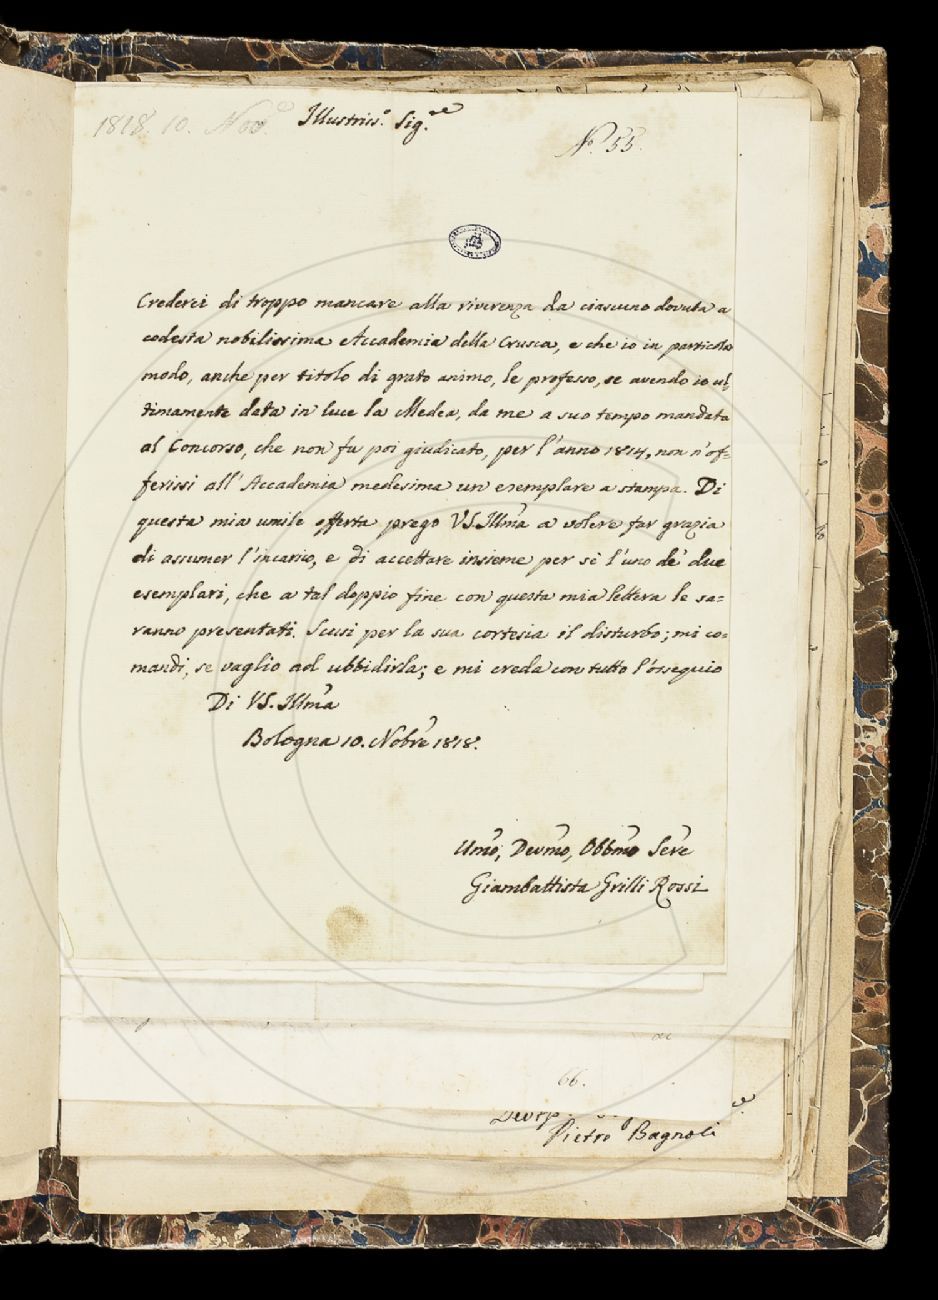 1818. 10. Nov.e
Illustris.o Sig.re
N.o 55.
Crederei di troppo mancare alla riverenza da ciascuno dovuta a
codesta nobilissima Accademia della Crusca, e che io in particolar
modo, anche per titolo di grato animo, le professo, se avendo io ul-
timamente data in luce la Medea, da me a suo tempo mandata
al Concorso, che non fu poi giudicato, per l'anno 1814, non n'of=
ferissi all'Accademia medesima un esemplare a stampa. Di
questa mia umile offerta prego VS. Illma a volere far grazia
di assumer l'incarico, e di accettare insieme per sè l'uno de' due
esemplari, che a tal doppio fine con questa mia lettera le sa=
ranno presentati. Scusi per la sua cortesia il disturbo; mi co=
mandi, se vaglio ad ubbidirla; e mi creda con tutto l'ossequio
Di VS. Illma
Bologna 10. Nobre 1818.
Umo, Devmo, Obbmo Serre
Giambattista Grilli Rossi
66.
Pietro Bagnoli